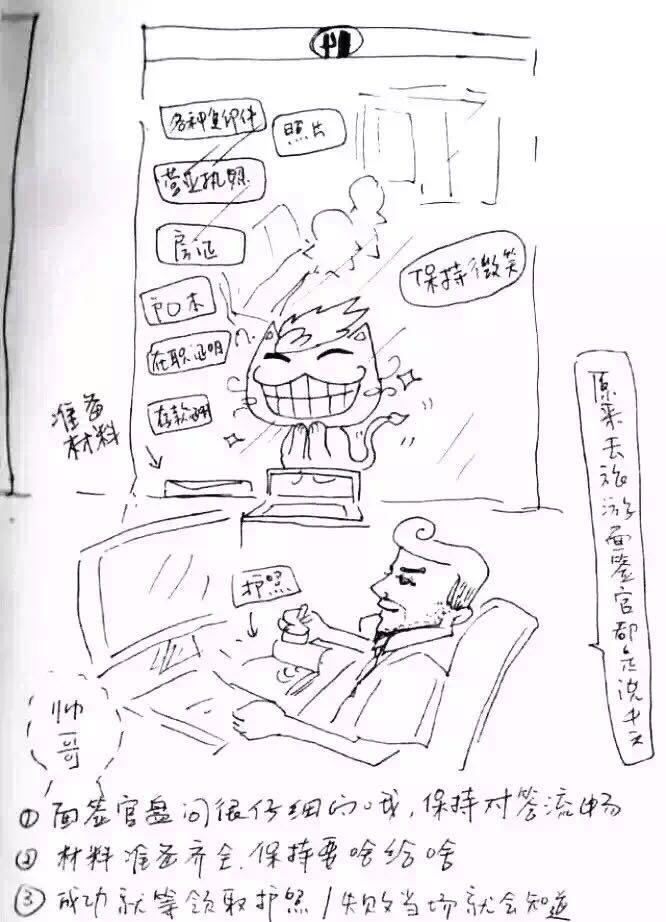 各种复印件
照片
营业执照
房证
户口本
在职证明
存款证明
保持微笑
准备
材料
护照
帅哥
原来去旅游面签官都会说中文
①面签官盘问很仔细的哦,保持对答流畅
②材料准备齐全,保持要啥给啥
③成功就等领取护照/失败当场就会知道